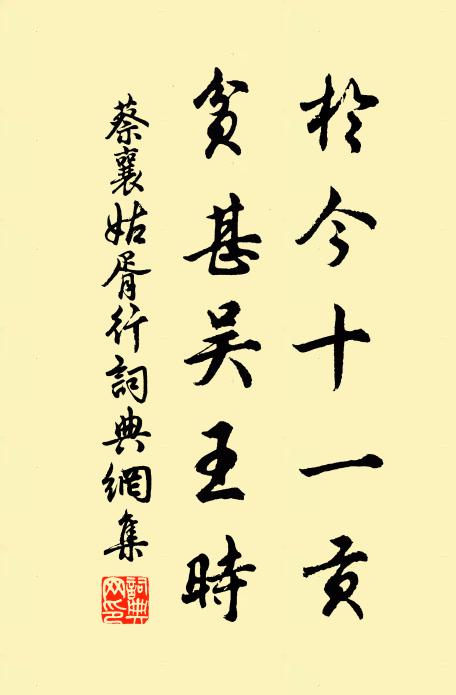 於今十一貢
貧甚吴王時
蔡襄姑胥行詞典網集
詞典网印